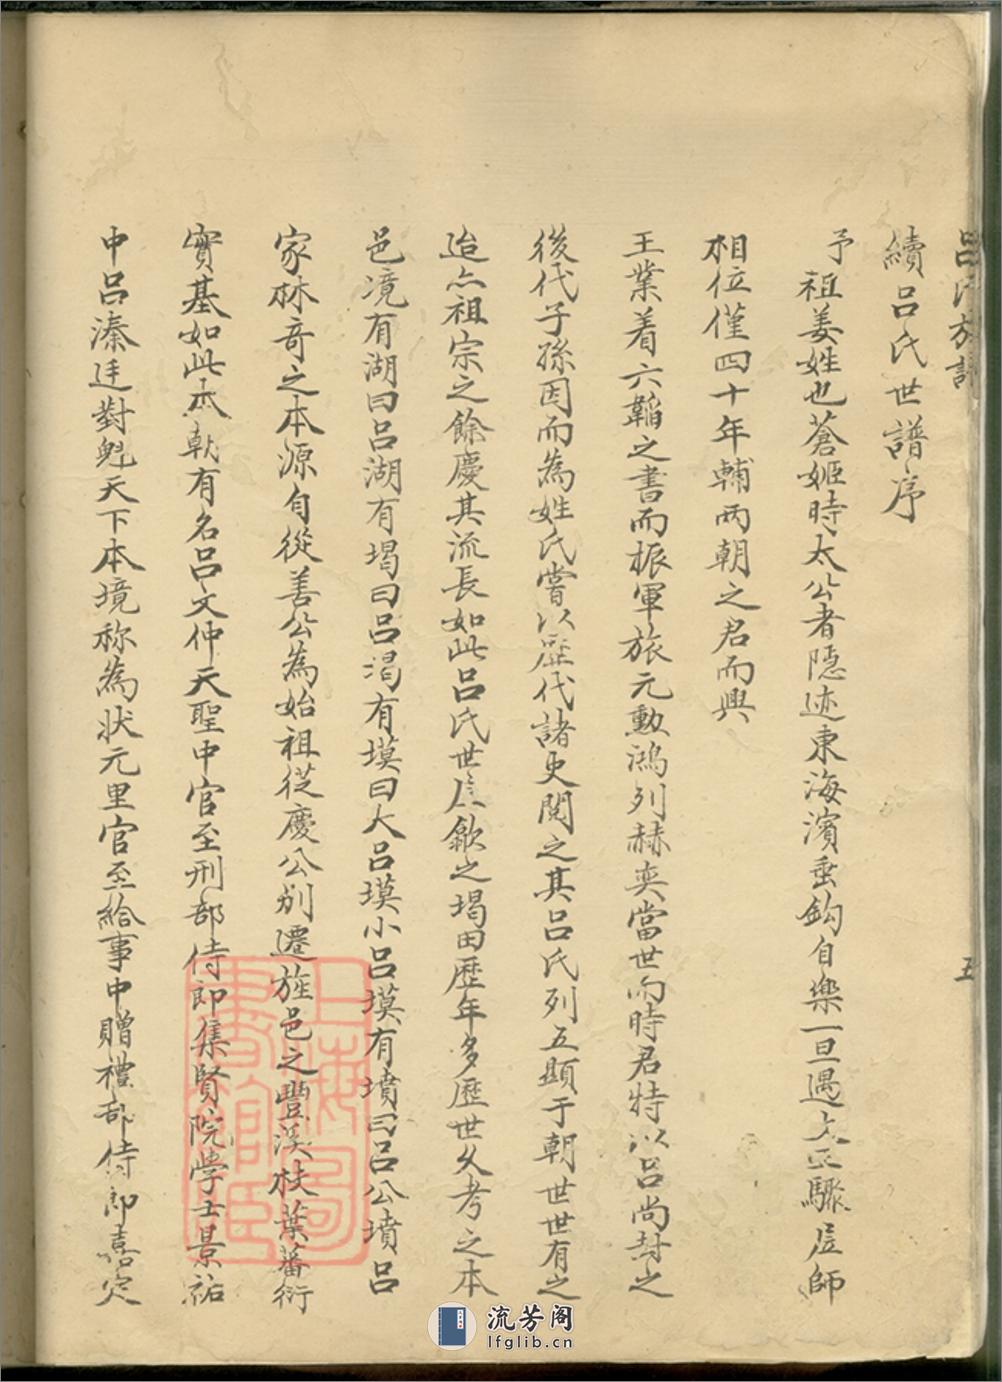 呂氏族譜 五
續呂氏世譜序
予祖姜姓也蒼姬時太公者隱迹東海濱垂鈎自樂一旦遇文王驟居師
相位僅四十年輔两朝之君而興
王業着六韜之書而振軍旅元勳鴻列赫奕當世而時君特以呂尚封之
後代子孫因而為姓氏嘗以歴代諸史閱之其呂氏列五顯于朝世世有之
迨亦祖宗之餘慶其流長如此呂氏世居歙之堨田歷年多歷世久考之本
邑境有湖曰呂湖有堨曰呂渴有塻曰大呂塻小呂塻有墳曰呂公墳呂
家林奇之本源自從善公為始祖從慶公別遷旌邑之豐溪枝葉蕃衍
實基如此本朝有名呂文仲天聖中官至刑部侍郎集賢院学士景祐
中呂溱廷對魁天下本境称為状元里官至給事中贈禮部侍郎嘉定
上海圖書館藏
流芳阁
lfglib.cn